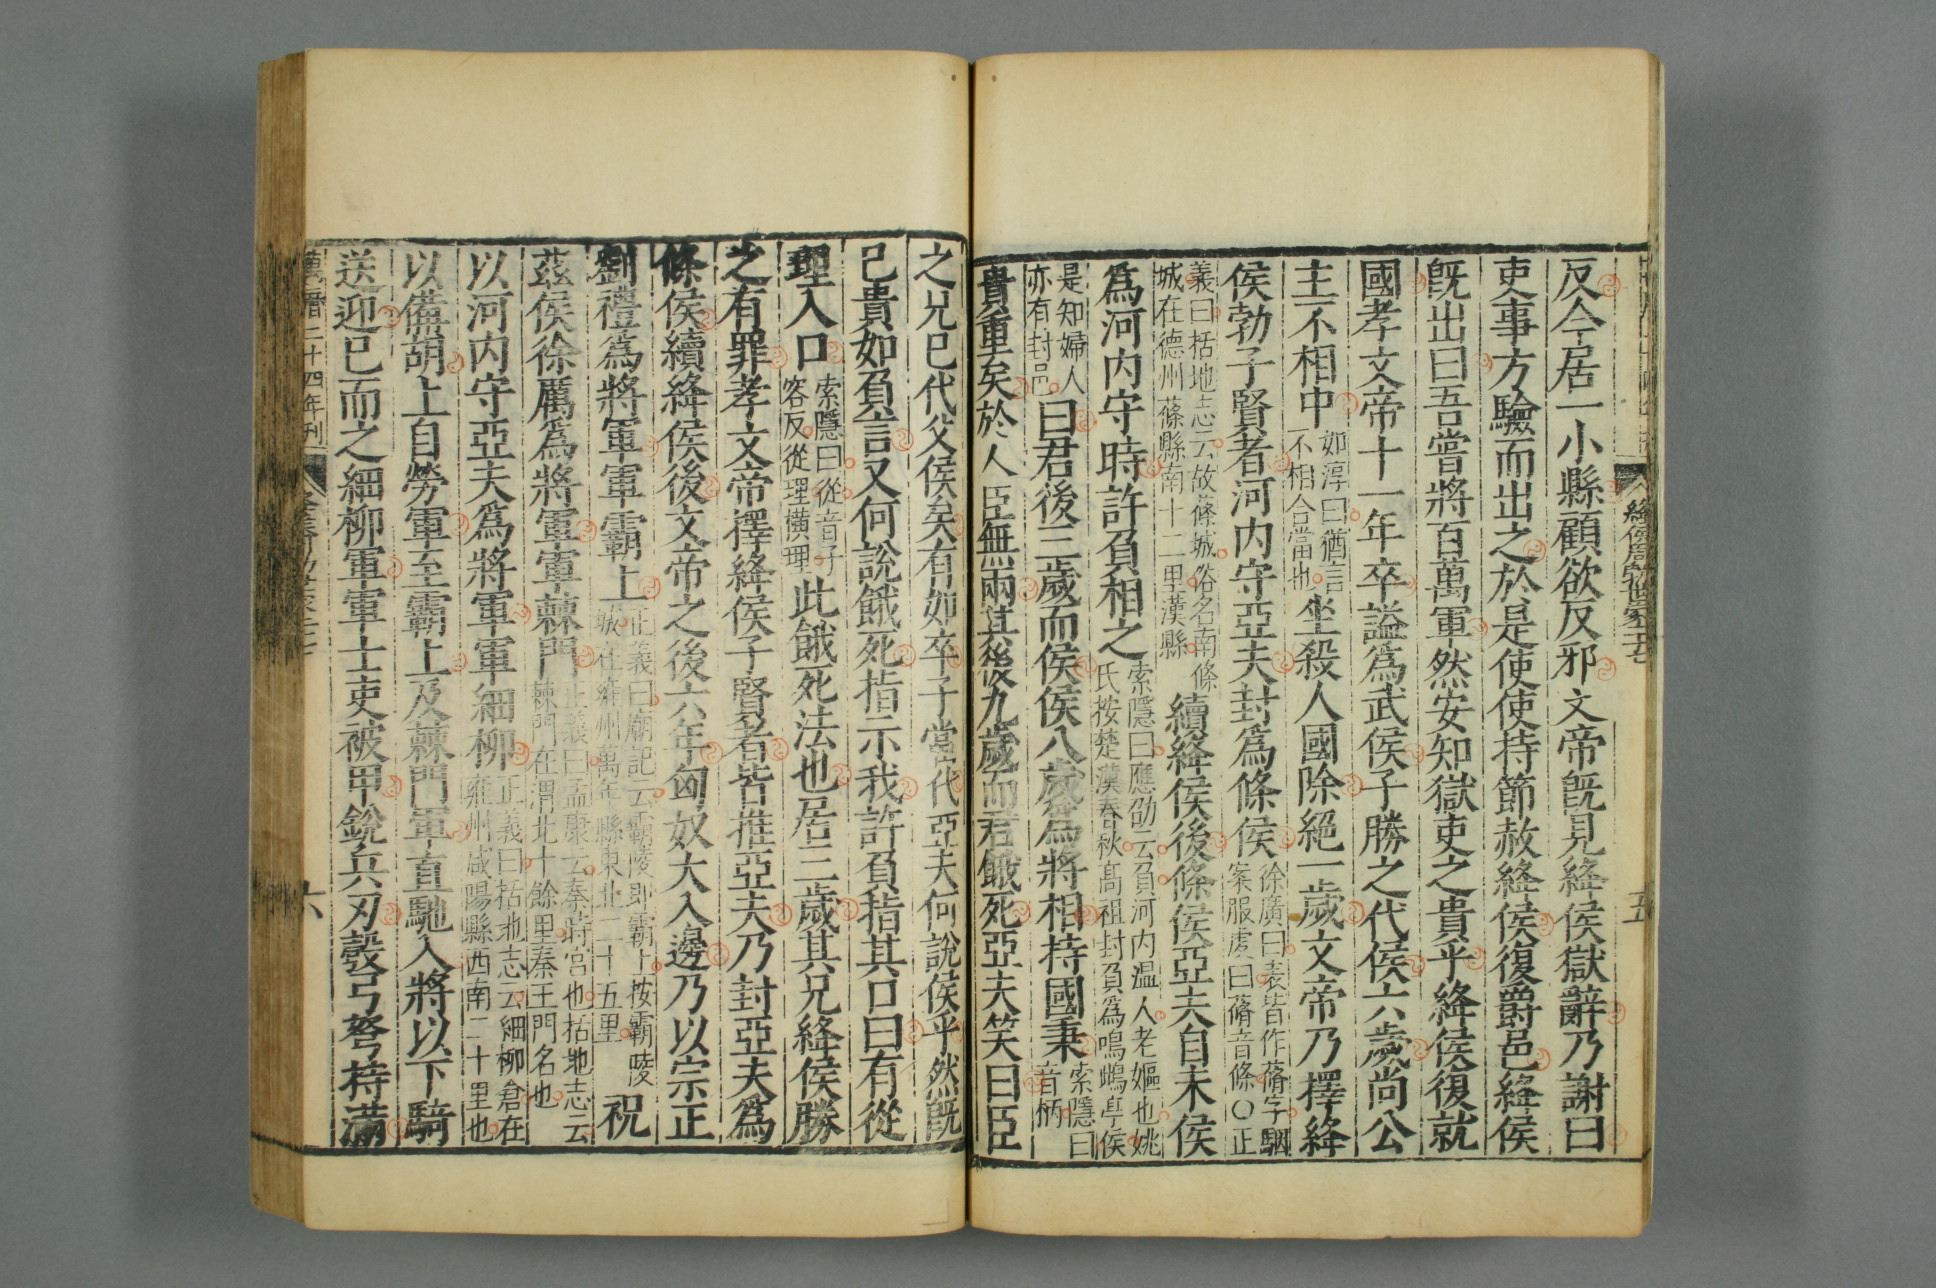 絳侯周勃世家二十七
五
反今居一小縣顧欲反邪文帝旣見絳侯獄辭乃謝曰
吏事方驗而出之於是使使持節赦絳侯復爵邑絳侯
旣出曰吾嘗將百萬軍然安知獄吏之貴乎絳侯復就
國孝文帝十一年卒謚爲武侯子勝之代侯六歲尚公
主不相中如淳曰猶言不相合當也坐殺人國除絕一歲文帝乃擇絳
侯勃子賢者河內守亞夫封爲條侯徐廣曰表皆作蓨字駰案服虔曰蓨音條○正
義曰括地志云故蓨城俗名南條城在德州蓨縣南十二里漢縣續絳侯後條侯亞夫自未侯
爲河內守時許負相之索隱曰應劭云負河內温人老嫗也姚氏按楚漢春秋高祖封負爲鳴鴟亭侯
是知婦人亦有封邑曰君後三歲而侯侯八歲爲將相持國秉索隱曰音柄
貴重矣於人臣無兩其後九歲而君餓死亞夫笑曰臣
之兄已代父侯矣有如卒子當代亞夫何說侯乎然旣
已貴如負言又何說餓死指示我許負指其口曰有從
理入口索隱曰從音子容反從理橫理此餓死法也居三歲其兄絳侯勝
之有罪孝文帝擇絳侯子賢者皆推亞夫乃封亞夫爲
條侯續絳侯後文帝之後六年匈奴大入邊乃以宗正
劉禮爲將軍軍霸上正義曰廟記云霸陵即霸上按霸陵城在雍州萬年縣東北二十五里祝
茲侯徐厲爲將軍軍棘門正義曰孟康云秦時宮也括地志云棘門在渭北十餘里秦王門名也
以河內守亞夫爲將軍軍細柳正義曰括地志云細柳倉在雍州咸陽縣西南二十里也
以備胡上自勞軍至霸上及棘門軍直馳入將以下騎
送迎已而之細柳軍軍士吏被甲銳兵刃彀弓弩持滿
萬曆二十四年刊
六